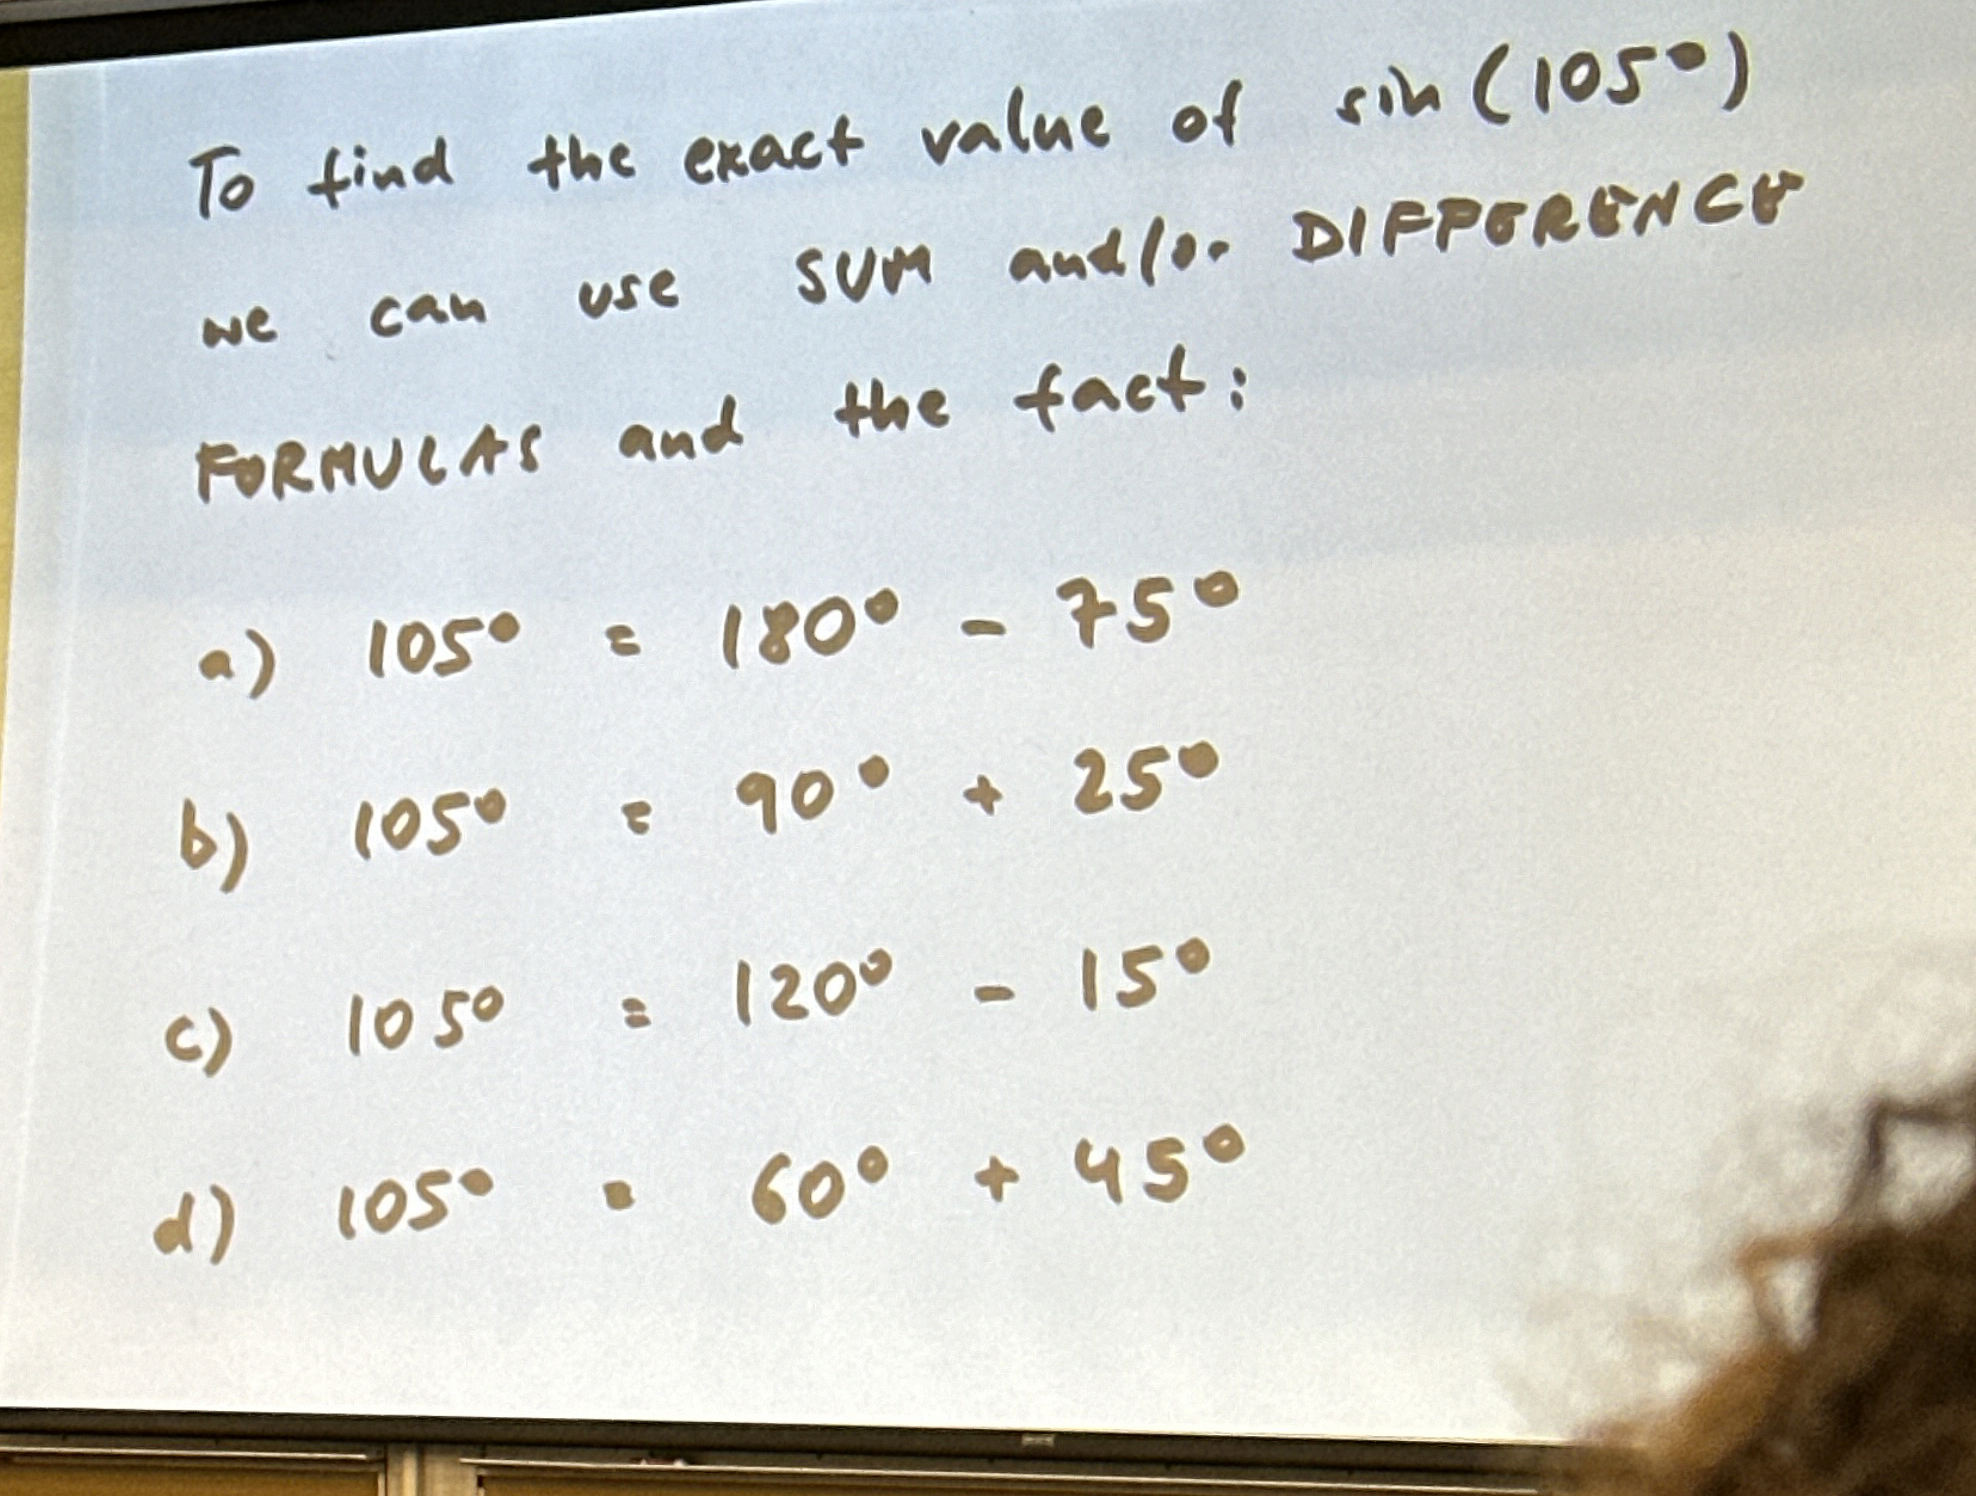 To find the exact value of sin (105°)
we can use SUM and/or DIFFERENCE
FORMULAS and the fact:
a) 105° = 180° - 75°
b) 105° = 90° + 25°
c) 105° = 120° - 15°
d) 105° = 60° + 45°